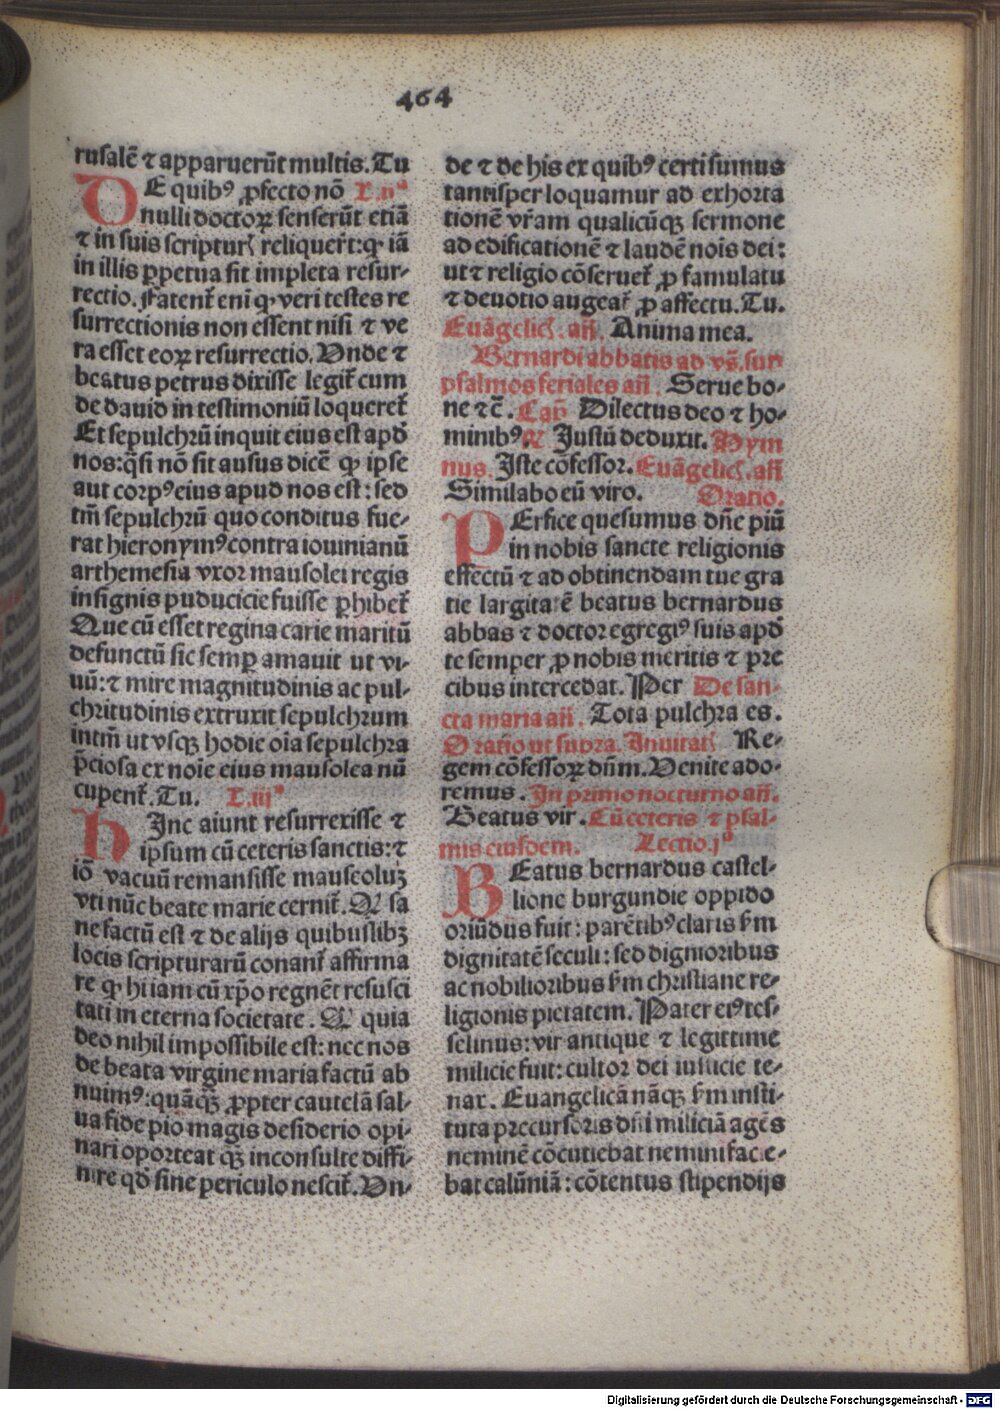 464
rusalē ⁊ apparuerūt multis. Tu
DE quibꝰ ꝓfecto nō L.ijᵃ
nulli doctoꝝ senserūt etiā
⁊ in suis scripturꝭ reliquerᷤt: ꝙ iā
in illis ꝑpetua sit impleta resur⸗
rectio. Fatentᷣ eni ꝙ veri testes re
surrectionis non essent nisi ⁊ ve
ra esset eoꝝ resurrectio. Vnde ⁊
beatus petrus dixisse legitᷣ cum
de dauid in testimoniū loqueretᷣ
Et sepulchrū inquit eius est apd̄
nos: q̄si nō sit ausus dicē ꝙ ipse
aut corpꝰ eius apud nos est: sed
tm̄ sepulchrū quo conditus fue⸗
rat hieronymꝰ contra iouinianū
arthemesia vxor mausolei regis
insignis puducicie fuisse ꝑhibetᷣ
Que cū esset regina carie maritū
defunctū sic semꝑ amauit ut vi⸗
uū: ⁊ mire magnitudinis ac pul⸗
chritudinis extruxit sepulchrum
intm̄ ut vsqꝫ hodie oīa sepulchra
p̄ciosa ex noīe eius mausolea nū
cupentᷣ. Tu. L.iijᵃ
HInc aiunt resurrexisse ⁊
ipsum cū ceteris sanctis: ⁊
iō vacuū remansisse mauseoluꝫ
vti nūc beate marie cernitᷣ. Qꝭ sa
ne factū est ⁊ de alijs quibuslibꝫ
locis scripturarū conantᷣ affirma
re ꝙ hi iam cū xp̄o regnēt resusci
tati in eterna societate. Et quia
deo nihil impossibile est: nec nos
de beata virgine maria factū ab
nuimꝰ: quāqꝫ ꝓpter cautelā sal⸗
ua fide pio magis desiderio opi⸗
nari oporteat qꝫ inconsulte diffi⸗
nire qd̄ sine periculo nescitᷣ. Vn⸗
de ⁊ de his ex quibꝰ certi sumus
tantisper loquamur ad exhorta
tionē vr̄am qualicūqꝫ sermone
ad edificationē ⁊ laudē nois dei:
ut ⁊ religio cōseruetᷣ ꝓ famulatu
⁊ deuotio augeatᷣ ꝓ affectu. Tu.
Euāgelicꝭ. añ. Anima mea.
Bernardi abbatis ad vs̄. sup̄
psalmos feriales añ. Serue bo⸗
ne ⁊c̄. Cap̄ Dilectus deo ⁊ ho⸗
minibꝰ. ℟ Justū deduxit. Hym
nus. Iste cōfessor. Euāgelicꝭ. añ
Similabo eū viro. Oratio.
PErfice quesumus dn̄e piū
in nobis sancte religionis
effectū ⁊ ad obtinendam tue gra
tie largitatē beatus bernardus
abbas ⁊ doctor egregiꝰ suis apd̄
te semper ꝓ nobis meritis ⁊ pre
cibus intercedat. Per De san⸗
cta maria añ. Tota pulchra es.
Oratio ut supra. Inuitatꝭ Re⸗
gem cōfessoꝝ dn̄m. Venite ado⸗
remus. In primo nocturno añ.
Beatus vir. Cū ceteris ⁊ psal⸗
mis eiusdem. Lectio.jᵃ
BEatus bernardus castel⸗
lione burgundie oppido
oriūdus fuit: parētibꝰ claris ẜm
dignitatē seculi: sed dignioribus
ac nobilioribus ẜm christiane re⸗
ligionis pietatem. Pater eiꝰ tes⸗
selinus: vir antique ⁊ legittime
milicie fuit: cultor dei iusticie te⸗
nax. Euangelicā nāqꝫ ẜm insti⸗
tuta precursoris dn̄i miliciā agēs
neminē cōcutiebat nemini face⸗
bat calūniā: cōtentus stipendijs
Digitalisierung gefördert durch die Deutsche Forschungsgemeinschaft - DFG